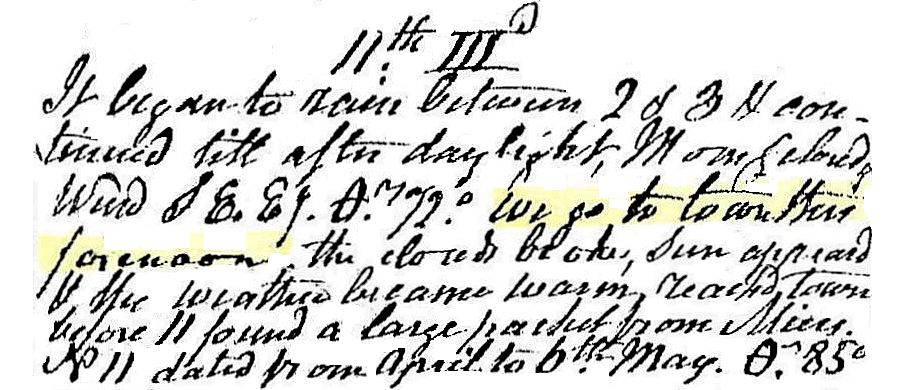 11.th IIId
It began to rain between 2 & 3 & con-
tinued till after daylight, Morng cloudy
Wind S E. Ey. 72.° we go to town this
forenoon, the clouds broke, sun appeard
& the weather became warm, reachd town
before 11 found a large packet from
N 11 dated from April to 6th May. 85°